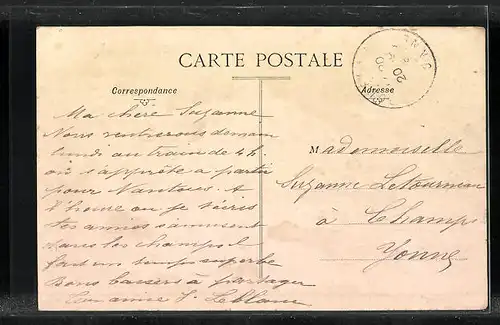 CARTE POSTALE
Correspondance
Adresse
Ma chère Suzanne
Nous rentrerons demain
lundi au train de 4h.
on s'apprête à partir
pour
d'heure où je t'écris
tes amies s'amusent
dans les champs il
fait un temps superbe
Bons baisers à partager
Ton amie J. Leblanc
Mademoiselle
Suzanne Letourneau
à Champs
Yonne
20